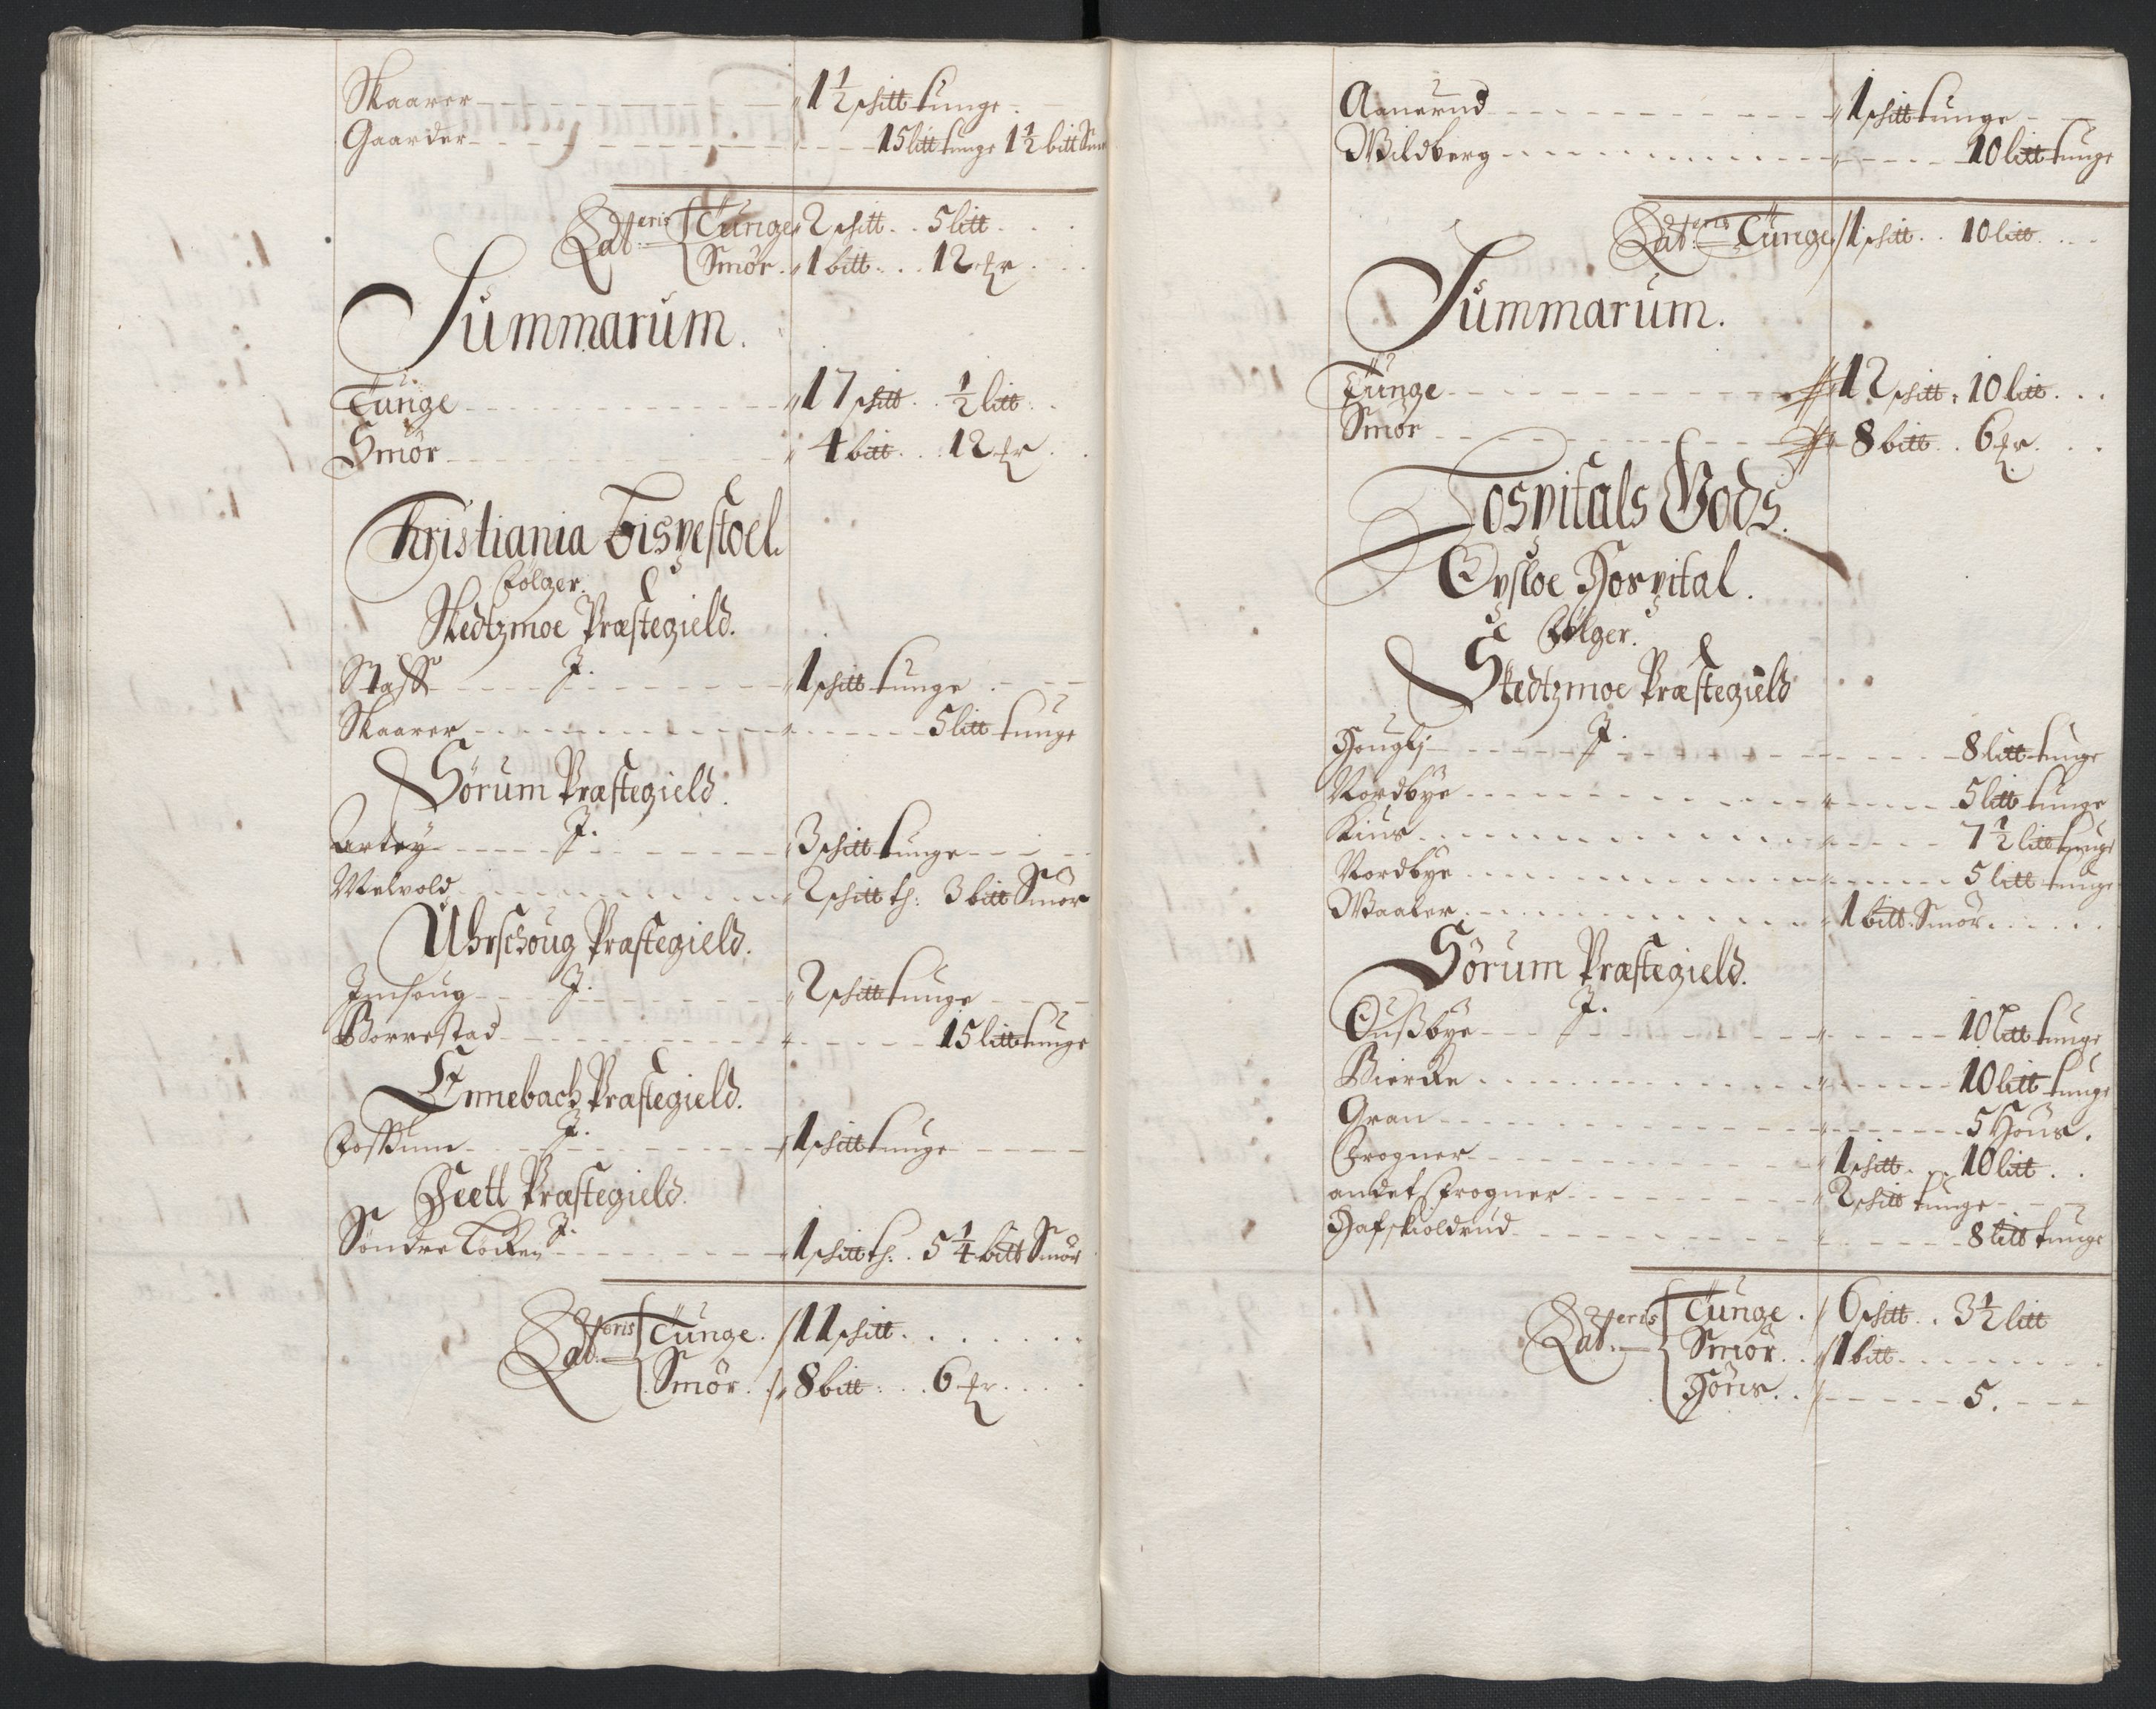 Skaarer 1½ schitt tunge
Gaarder 15 litt tunge 1½ bitt Smör
Lateris Tunge 2 schitt 5 litt
Smör 1 bitt 12 ℔r
Summarum.
Tunge 17 schitt ½ litt
Smör 4 bitt 12 ℔r
Christiania Bispestoel.
Følger.
Skedtzmoe Præstegield.
J.
Staff 1 schitt tunge
Skaarer 5 litt tunge
Sörum Præstegield.
J.
Arteg 3 schitt tunge
Melvold 2 schitt th: 3 bitt Smör
Uhrschoug Præstegield.
J.
Jmhoug 2 schitt tunge
Borrestad 15 litt tunge
Ennebach Præstegield.
J.
Fossum 1 schitt tunge
Feett Præstegield.
J.
Söndre Löcken 1 schitt th: 5¼ bitt Smör
Lateris Tunge. 11 schitt.
Smör. 8 bitt 6 ℔r
Aanerud 1 schitt tunge
Mildberg 10 litt tunge
Lateris Tunge 1 schitt 10 litt
Summarum.
Tunge 12 schitt 10 litt
Smör 8 bitt 6 ℔r
Hospitals Gods.
Opsloe Hospital.
Følger.
Skedtzmoe Præstegield
J.
Houglj 8 litt tunge
Nordbye 5 litt tunge
Kius 7½ litt tunge
Nordbye 5 litt tunge
Maaler 1 bitt Smör
Sörum Præstegield.
J.
Oußbye 10 litt tunge
Biercke 10 litt tunge
Gran 5 Höns.
Frogner 1 schitt 10 litt
andet Frogner 2 schitt tunge
Hafskioldrud 8 litt tunge
Lateris Tunge. 6 schitt 3½ litt
Smör. 1 bitt
Höns. 5.